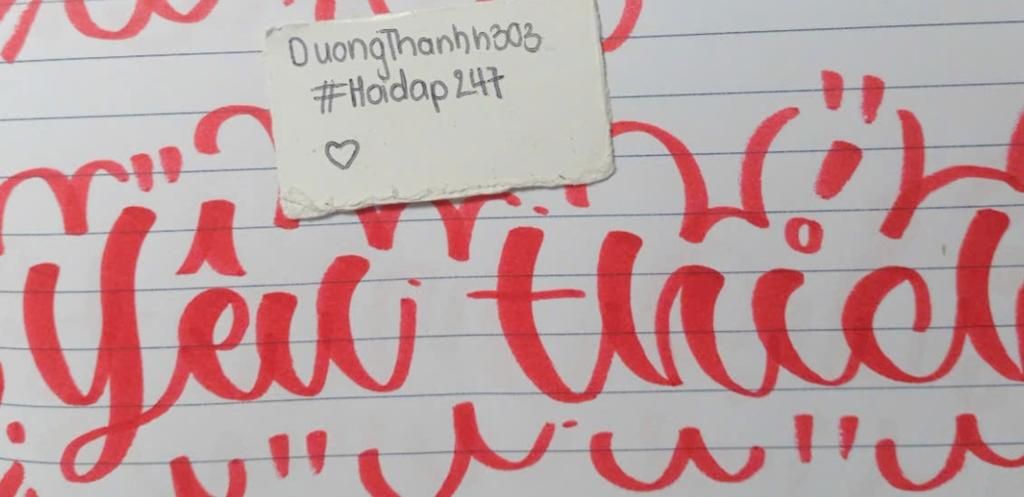 DuongThanhh303
#Hoidap247
♡
Yêu thich